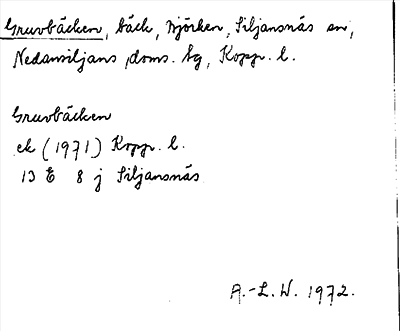 Gruvbäcken, bäck, Björken, Siljansnäs sn,
Nedansiljans doms. tg, Kopp. l.
Gruvbäcken
ek (1971) Kopp. l.
13 E 8 j Siljansnäs
A.-L. W. 1972.